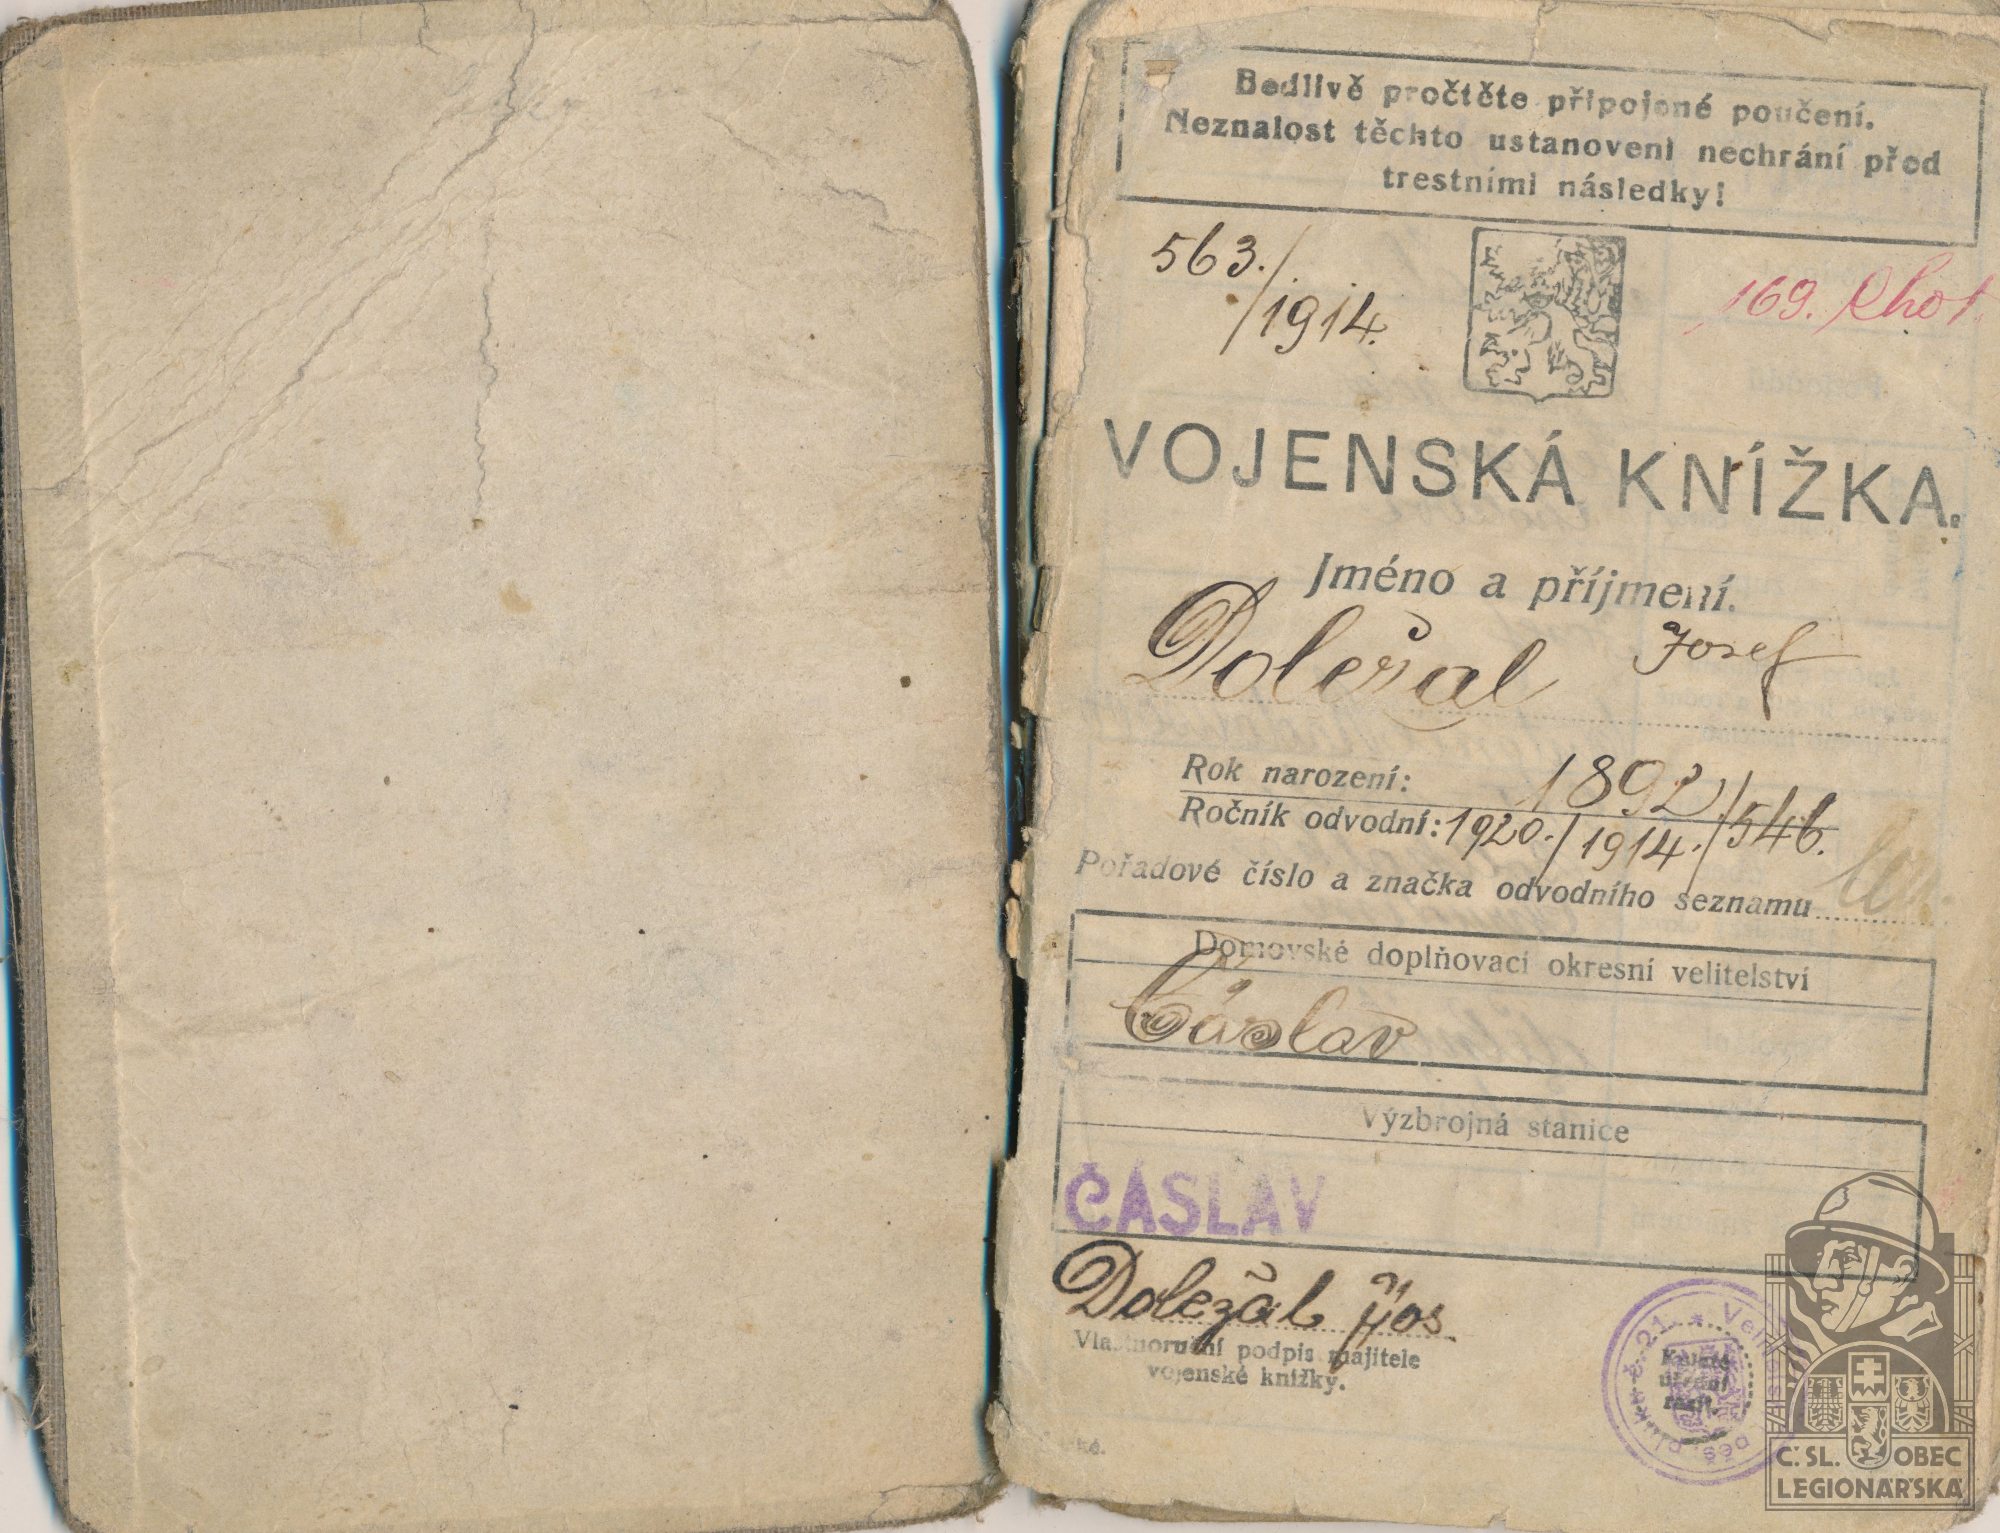 Bedlivě pročtěte připojené poučení.
Neznalost těchto ustanovení nechrání před
trestními následky!
563./1914.
169. Chot
VOJENSKÁ KNÍŽKA.
Jméno a příjmení.
Doležal Josef
Rok narození: 1892
Ročník odvodní: 1920./1914./546.
Pořadové číslo a značka odvodního seznamu
Domovské doplňovací okresní velitelství
Čáslav
Výzbrojná stanice
ČÁSLAV
Doležal Jos
Vlastnoruční podpis majitele
vojenské knížky.
Kulaté
úřední
raz.
pěš. pluku č. 21. * Velit
Č.SL. OBEC
LEGIONÁŘSKÁ